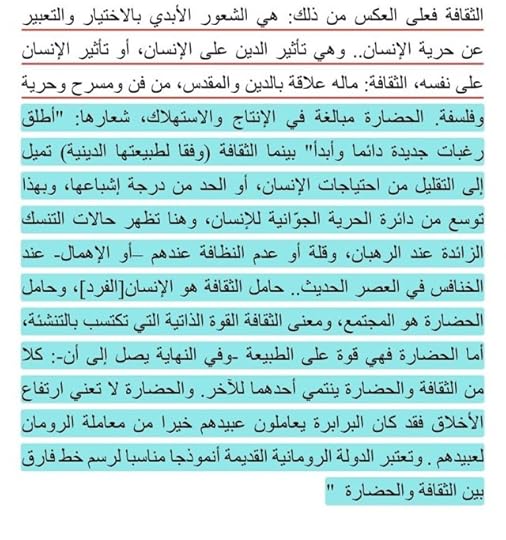 الثقافة فعلى العكس من ذلك: هي الشعور الأبدي بالاختيار والتعبير
عن حرية الإنسان.. وهي تأثير الدين على الإنسان، أو تأثير الإنسان
على نفسه، الثقافة: ماله علاقة بالدين والمقدس، من فن ومسرح وحرية
وفلسفة. الحضارة مبالغة في الإنتاج والاستهلاك، شعارها: "أطلق
رغبات جديدة دائما وأبدأ" بينما الثقافة (وفقا لطبيعتها الدينية) تميل
إلى التقليل من احتياجات الإنسان، أو الحد من درجة إشباعها، وبهذا
توسع من دائرة الحرية الجوّانية للإنسان، وهنا تظهر حالات التنسك
الزائدة عند الرهبان، وقلة أو عدم النظافة عندهم –أو الإهمال- عند
الخنافس في العصر الحديث.. حامل الثقافة هو الإنسان[الفرد]، وحامل
الحضارة هو المجتمع، ومعنى الثقافة القوة الذاتية التي تكتسب بالتنشئة،
أما الحضارة فهي قوة على الطبيعة -وفي النهاية يصل إلى أن-: كلا
من الثقافة والحضارة ينتمي أحدهما للآخر. والحضارة لا تعني ارتفاع
الأخلاق فقد كان البرابرة يعاملون عبيدهم خيرا من معاملة الرومان
لعبيدهم . وتعتبر الدولة الرومانية القديمة أنموذجا مناسبا لرسم خط فارق
بين الثقافة والحضارة "